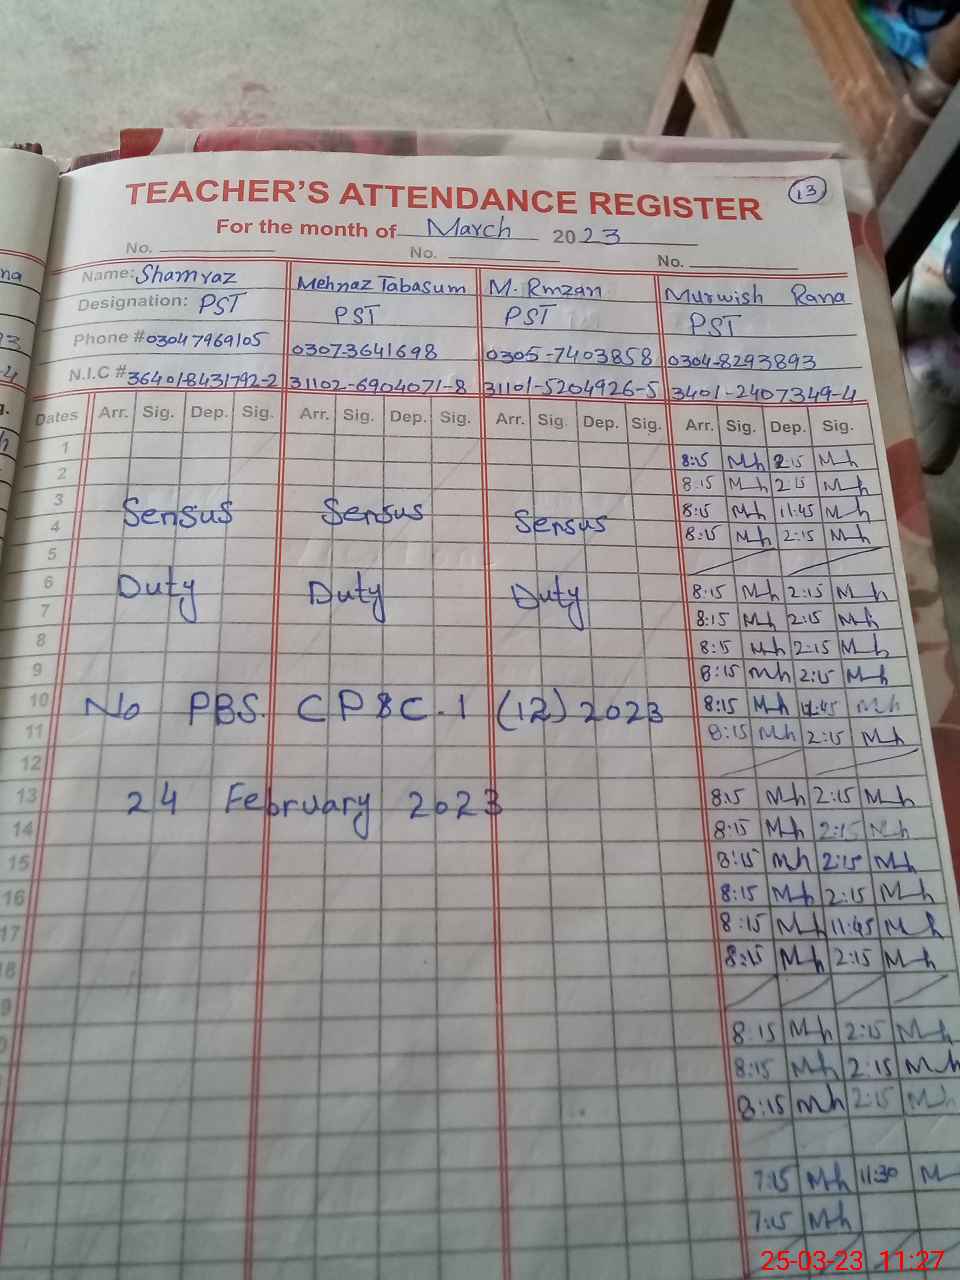 TEACHER'S ATTENDANCE REGISTER 13
For the month of March 2023
No. No. No.
Name: Shamraz Mehnaz Tabasum M. Rmzan Murwish Rana
Designation: PST PST PST PST
Phone # 03047969105 0307-3641698 0305-7403858 0304-8293893
N.I.C # 36401-8431792-2 31102-6904071-8 31101-5204926-5 3401-2407349-4
Dates Arr. Sig. Dep. Sig. Arr. Sig. Dep. Sig. Arr. Sig. Dep. Sig. Arr. Sig. Dep. Sig.
1 8:15 Mh 2:15 Mh
2 8:15 Mh 2:15 Mh
3 Sensus Sensus Sensus 8:15 Mh 11:45 Mh
4 8:15 Mh 2:15 Mh
5
6 Duty Duty Duty 8:15 Mh 2:15 Mh
7 8:15 Mh 2:15 Mh
8 8:15 Mh 2:15 Mh
9 8:15 Mh 2:15 Mh
10 No PBS. CP8C.1 (12) 2023 8:15 Mh 11:45 Mh
11 8:15 Mh 2:15 Mh
12
13 24 February 2023 8:15 Mh 2:15 Mh
14 8:15 Mh 2:15 Mh
15 8:15 Mh 2:15 Mh
16 8:15 Mh 2:15 Mh
17 8:15 Mh 11:45 Mh
18 8:15 Mh 2:15 Mh
9
8:15 Mh 2:15 Mh
8:15 Mh 2:15 Mh
8:15 Mh 2:15 Mh
7:15 Mh 11:30 M
7:15 Mh
25-03-23 11:27